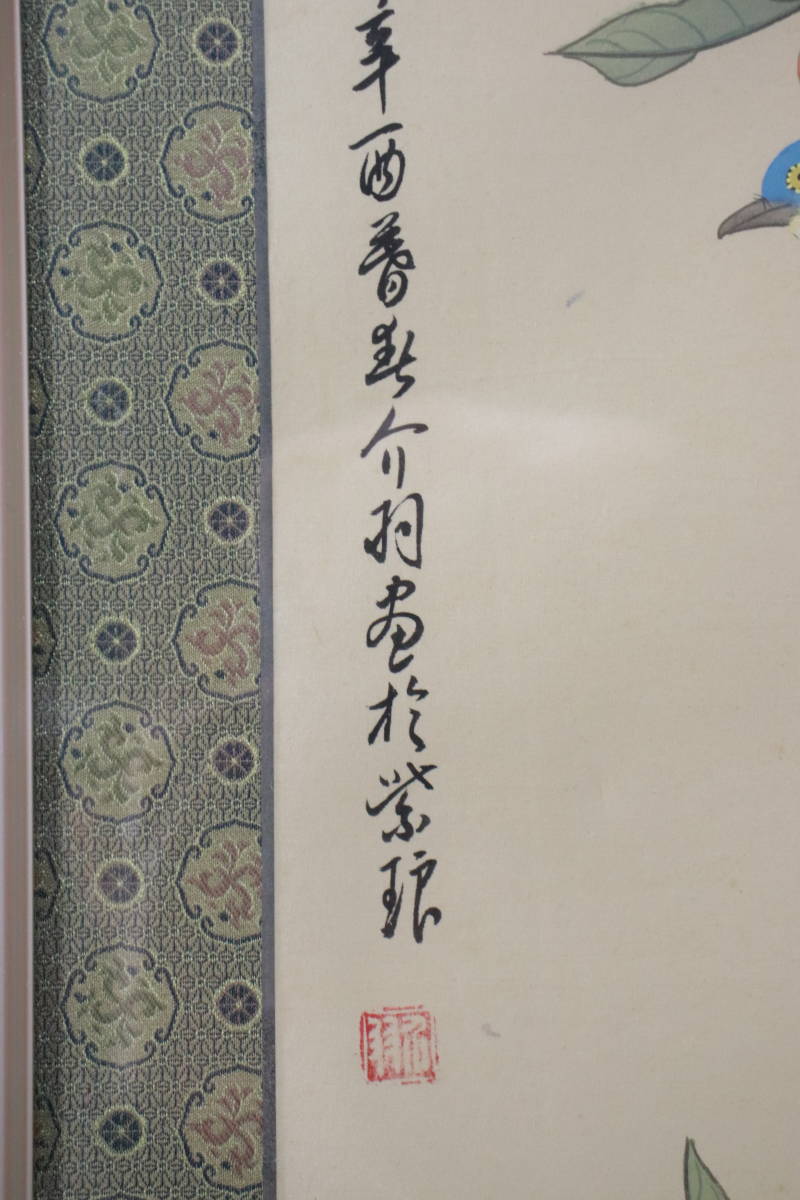 辛酉暮春介羽画於紫琅